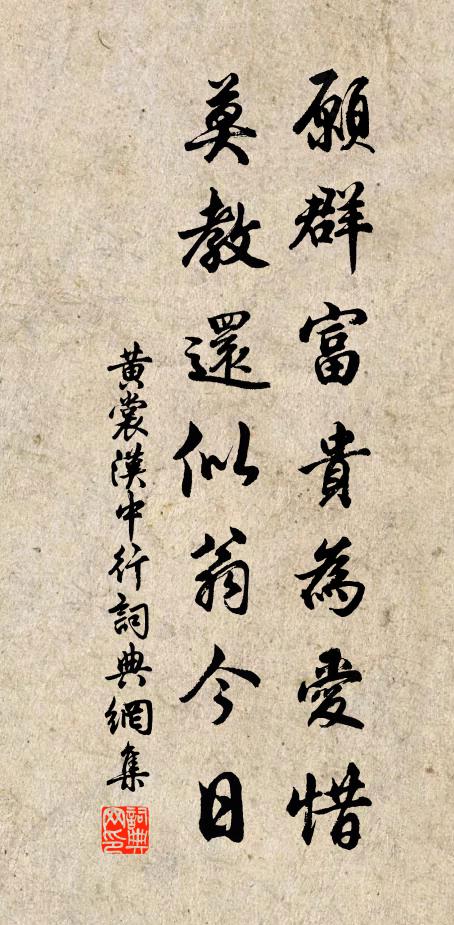 願群富貴為愛惜
莫教還似翁今日
黃裳漢中行詞典網集
詞典網印